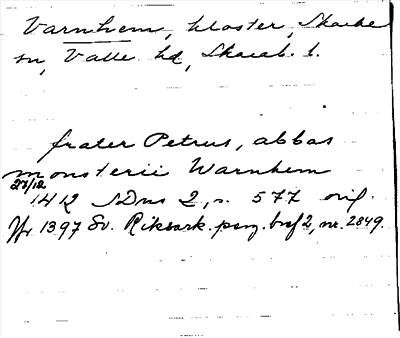 Varnhem, kloster, Skarke
sn, Valle hd, Skarab. l.
frater Petrus, abbas
monsterii Warnhem
27/12
1412 SDns 2, s. 577 orig.
Jfr 1397 Sv. Riksark. perg. bref 2, nr. 2849.